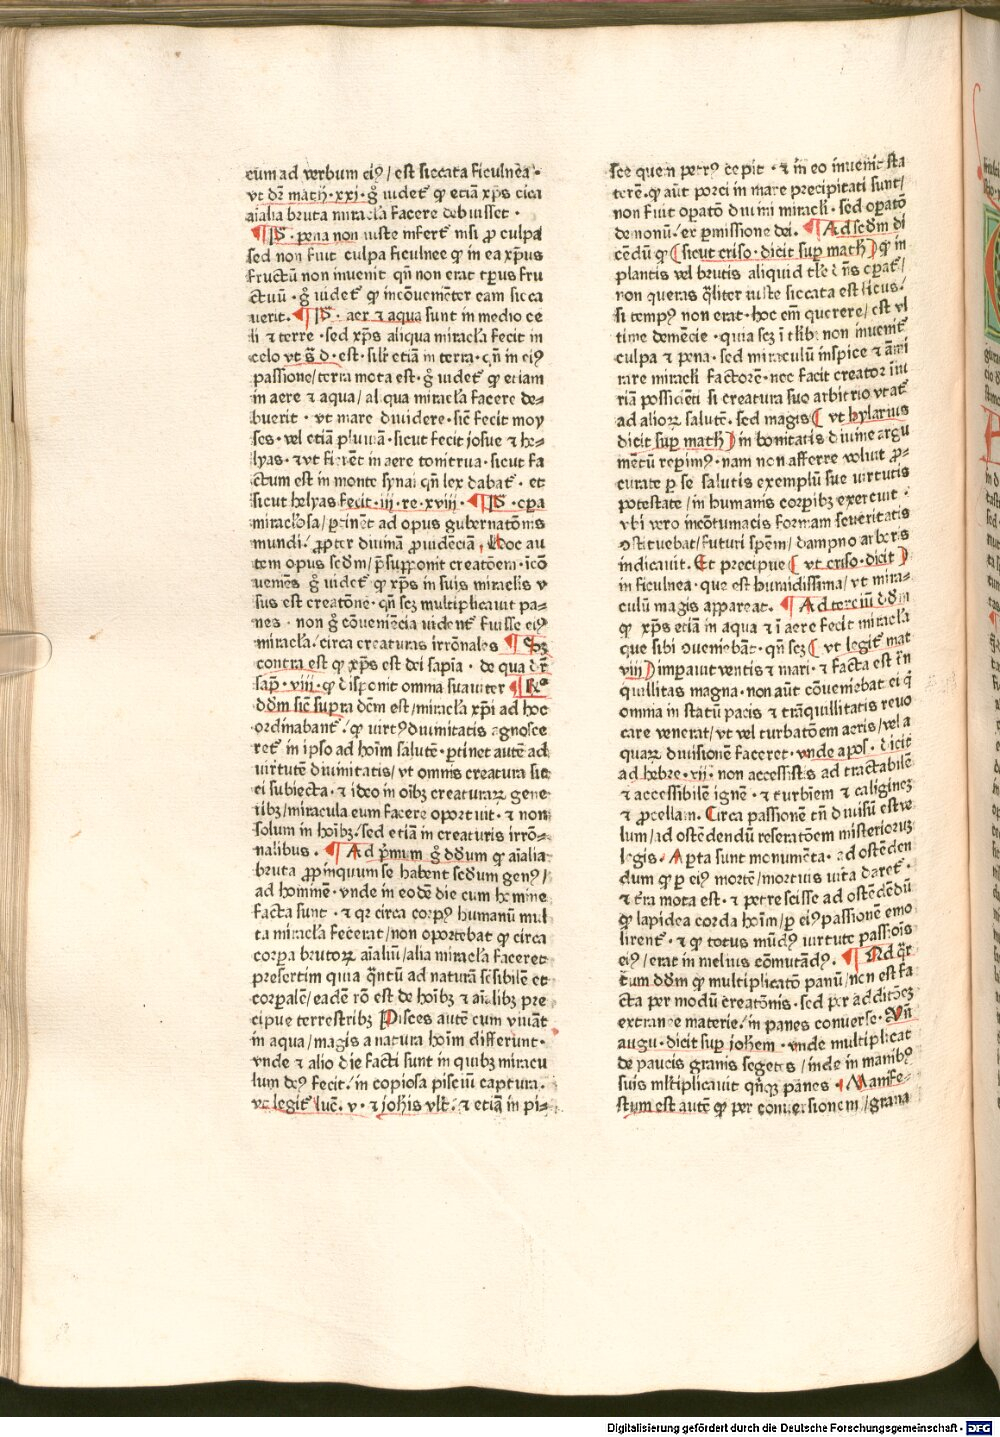 cum ad verbum eiꝰ / est siccata ficulnea ·
vt dr̄ math · xxi · g̊ videt᷑ ꝙ eciā xp̄s circa
aīalia bruta miracl̓a facere debuisset ·
¶ P̄ · pena non iuste infert᷑ nisi ꝓ culpa
sed non fuit culpa ficulnee ꝙ in ea xp̄us
fructū non invenit qn̄ non erat tp̄us fru
ctuū · g̊ videt᷑ ꝙ incōuenieter eam sicca
uerit. ¶ P̄ · aer ⁊ aqua sunt in medio ce
li ⁊ terre · sed xp̄s aliqua miracl̓a fecit in
celo vt s̄ d̄ · est · silr̄ etiā in terra · qn̄ in eiꝰ
passione / terra mota est · g̊ videt᷑ ꝙ etiam
in aere ⁊ aqua / aliqua miracl̓a facere de-
buerit · vt mare diuidere · sic̄ fecit moy
ses · vel etiā pluuiā · sicut fecit josue ⁊ he-
lyas · ⁊ vt fierēt in aere tonitrua · sicut fa
ctum est in monte synai qn̄ lex dabat᷑ · et
sicut helyas fecit · iii · re · xviii · ¶ P̄ · oꝑa
miracl̓osa / ꝑtinēt ad opus gubernatōnis
mundi / ꝓpter diuinā ꝓuidēciā · Hoc au
tem opus sedm / p̄supponit creatōem · icō
uemēs g̊ videt᷑ ꝙ xp̄s in suis miracl̓is v
sus est creatōne · qn̄ scꝫ multiplicauit pa-
nes · non g̊ cōuemēcia vident᷑ fuisse eiꝰ
miracl̓a / circa creaturas irrōnales ¶ Sꝫ
contra est ꝙ xp̄s est dei sapīa · de qua dr̄
sap̄ · viii · ꝙ disponit omnia suauiter ¶ Rº
dōm sic̄ supra dcm̄ est / miracl̓a xp̄i ad hoc
ordinabant᷑ / ꝙ virtꝰ diuinitatis agnosce
ret᷑ in ipso ad hoīm salutē · ꝑtinet autē ad
virtutē diuinitatis / vt omnis creatura sit
ei subiecta · ⁊ ideo in oībꝫ creaturaꝝ gene
ribꝫ / miracula eum facere oportuit · ⁊ non
solum in hoībꝫ / sed etiā in creaturis irrō-
nalibus · ¶ Ad p̄mum g̊ dōdum ꝙ aīalia
bruta ꝓpinquum se habent sedum genꝰ /
ad hominē · vnde in eodē die cum homine
facta sunt · ⁊ qr circa corpꝰ humanū mul
ta miracl̓a fecerat / non oportebat ꝙ circa
corpa brutoꝝ aīaliū / alia miracl̓a faceret
presertim quia q̄ntū ad naturā sēsibilē et
corpalē / eadē rō est de hoībꝫ ⁊ aīalibꝫ pre
cipue terrestribꝫ Pisces autē cum viuāt
in aqua / magis a natura hoīm differunt ·
vnde ⁊ alio die facti sunt in quibꝫ miracu
lum deꝰ fecit / in copiosa pisciū captura ·
vt legit᷑ luc̄ · v · ⁊ johis vlt̄ · ⁊ etiā in pi-
sce quen petrꝰ cepit · ⁊ in eo inuenit sta
terē · ꝙ aūt porci in mare precipitati sunt /
non fuit operatō diuini miracl̓i · sed operatō
demonū / ex ꝑmissione dei · ¶ Ad sedm di
cēdū ꝙ ( sicut criso · dicit sup̄ math ) ꝙ in
plantis vel brutis aliquid tl̓e dn̄s oꝑat᷑ /
non queras qliter iuste siccata est ficus /
si tempꝰ non erat · hoc em̄ querere / est vl
time demēcie · quia scꝫ i tl̓ibꝫ non inuenit᷑
culpa ⁊ pena · sed miraculū inspice ⁊ am̄i
rare miracl̓i factorē · nec facit creator iniu
riā possidēti si creatura suo arbitrio vtat᷑
ad alioꝝ salutē · sed magis ( vt hylarius
dicit sup̄ math ) in bonitatis diuine argu
mētū reperimꝰ · nam non afferre voluit ꝓ-
curate ꝑ se salutis exemplū sue virtutis
potestate / in humanis corpibꝫ exercuit ·
vbi vero incōtumacis formam seueritatis
ↄstituebat / futuri spēm / dampno arboris
indicauit. Et precipue ( vt criso · dicit )
in ficulnea · que est humidissima / vt mira-
culū magis appareat. ¶ Ad terciū dōm
ꝙ xp̄s etiā in aqua ⁊ ī aere fecit miracl̓a
que sibi ↄueniebāt · qn̄ scꝫ ( vt legit᷑ mat
viii ) imꝑauit ventis ⁊ mari · ⁊ facta est t̄n
quillitas magna · non aūt cōueniebat ei q̄
omnia in statū pacis ⁊ trāquillitatis reuo
care venerat / vt vel turbatōem aeris / vel a
quaꝝ diuisionē faceret · vnde apos · dicit
ad hebre · xii · non accessistis ad tractabilē
⁊ accessibilē ignē · ⁊ turbiem ⁊ caliginez
⁊ ꝓcellam. Circa passionē tn̄ diuisū est ve
lum / ad ostēdendū reseratōem misteriorꝫ
legis. Apta sunt monumēta · ad ostēden
dum ꝙ ꝑ eiꝰ mortē / mortuis vita daret᷑ ·
⁊ t̄ra mota est · ⁊ petre scisse ad ostēdēdū
ꝙ lapidea corda hoīm / ꝑ eiꝰ passionē emo
lirent᷑ · ⁊ ꝙ totus mūdꝰ virtute passiōis
eiꝰ / erat in melius cōmutādꝰ · ¶ Ad q̄r
tum dōm ꝙ multiplicatō panū / non est fa
cta per modū creatōnis · sed per additōeꝫ
extranee materie / in panes conuerse · Vn̄
augu · dicit sup̄ johem · vnde multiplicat
de paucis granis segetes / inde in manibꝰ
suis mltiplicauit qn̄qꝫ panes · Manife-
stum est autē ꝙ per conuersionem / grana
Digitalisierung gefördert durch die Deutsche Forschungsgemeinschaft · DFG